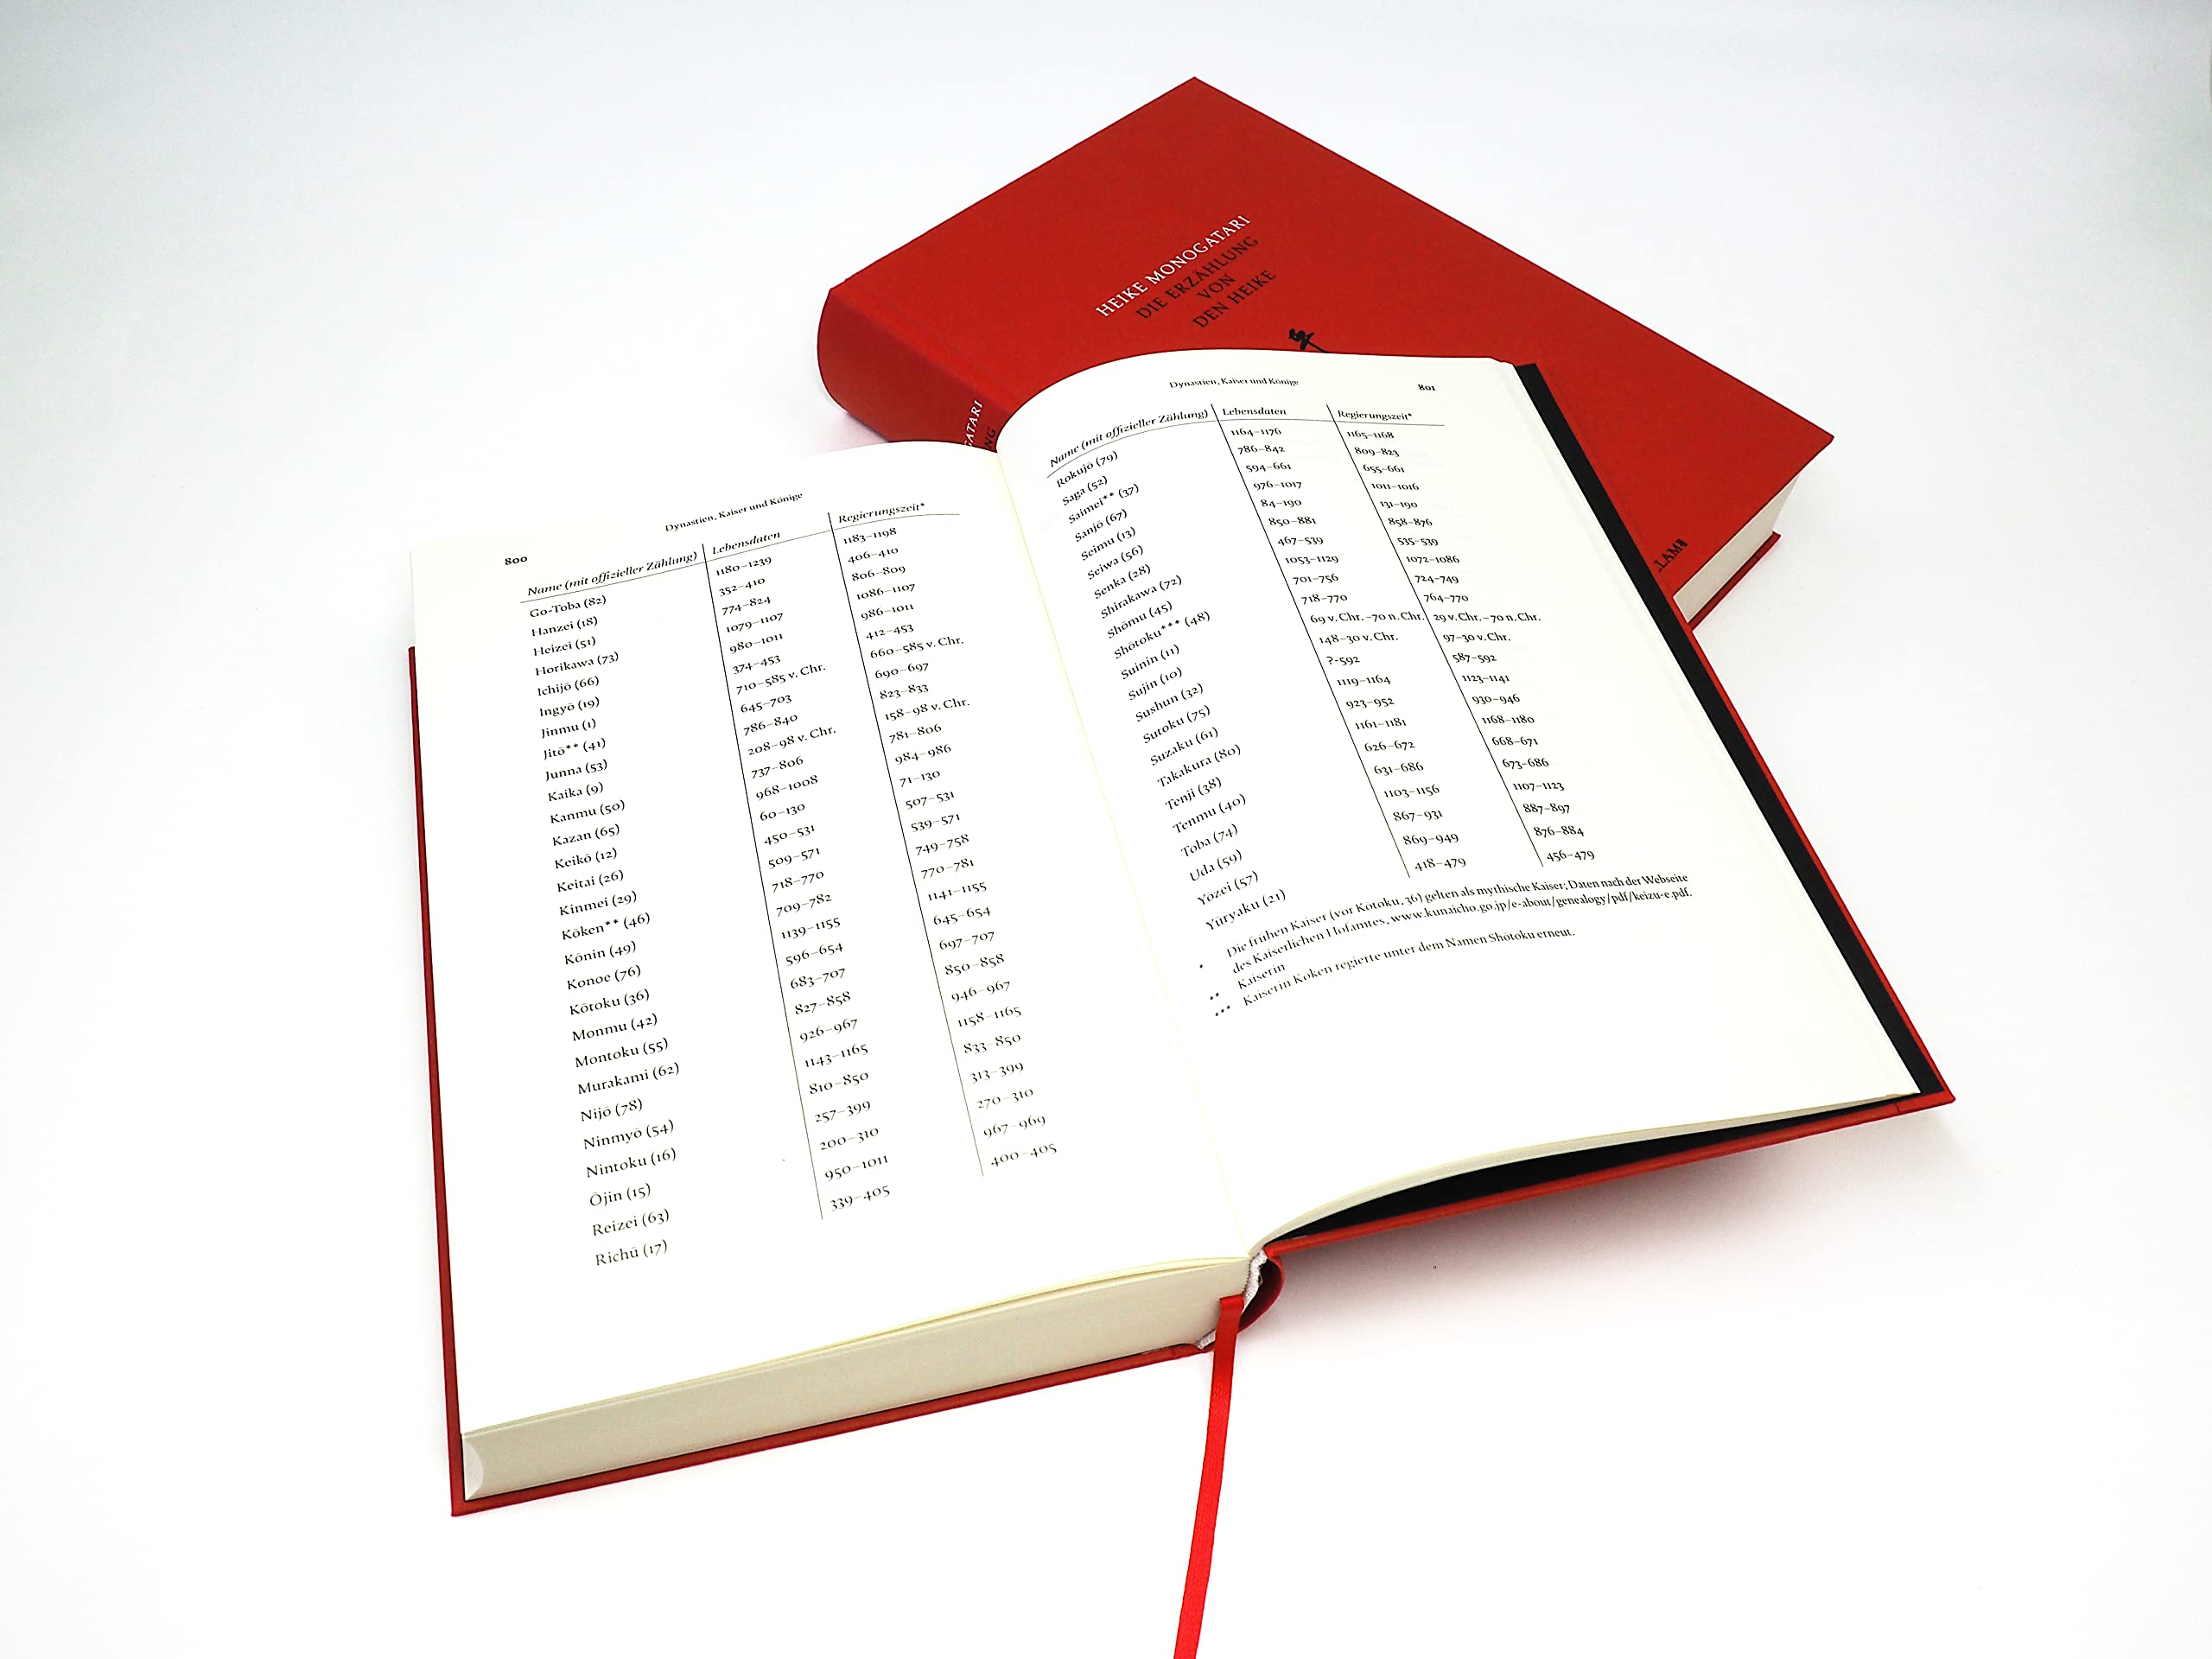 HEIKE MONOGATARI
DIE ERZÄHLUNG
VON
DEN HEIKE
GATARI
NG
LAM
800
Dynastien, Kaiser und Könige
Name (mit offizieller Zählung) Lebensdaten Regierungszeit*
Go-Toba (82) 1180–1239 1183–1198
Hanzei (18) 352–410 406–410
Heizei (51) 774–824 806–809
Horikawa (73) 1079–1107 1086–1107
Ichijō (66) 980–1011 986–1011
Ingyō (19) 374–453 412–453
Jinmu (1) 710–585 v. Chr. 660–585 v. Chr.
Jitō** (41) 645–703 690–697
Junna (53) 786–840 823–833
Kaika (9) 208–98 v. Chr. 158–98 v. Chr.
Kanmu (50) 737–806 781–806
Kazan (65) 968–1008 984–986
Keikō (12) 60–130 71–130
Keitai (26) 450–531 507–531
Kinmei (29) 509–571 539–571
Kōken** (46) 718–770 749–758
Kōnin (49) 709–782 770–781
Konoe (76) 1139–1155 1141–1155
Kōtoku (36) 596–654 645–654
Monmu (42) 683–707 697–707
Montoku (55) 827–858 850–858
Murakami (62) 926–967 946–967
Nijō (78) 1143–1165 1158–1165
Ninmyō (54) 810–850 833–850
Nintoku (16) 257–399 313–399
Ōjin (15) 200–310 270–310
Reizei (63) 950–1011 967–969
Richū (17) 339–405 400–405
Dynastien, Kaiser und Könige
801
Name (mit offizieller Zählung) Lebensdaten Regierungszeit*
Rokujō (79) 1164–1176 1165–1168
Saga (52) 786–842 809–823
Saimei** (37) 594–661 655–661
Sanjō (67) 976–1017 1011–1016
Seimu (13) 84–190 131–190
Seiwa (56) 850–881 858–876
Senka (28) 467–539 535–539
Shirakawa (72) 1053–1129 1072–1086
Shōmu (45) 701–756 724–749
Shōtoku*** (48) 718–770 764–770
Suinin (11) 69 v. Chr. –70 n. Chr. 29 v. Chr. –70 n. Chr.
Sujin (10) 148–30 v. Chr. 97–30 v. Chr.
Sushun (32) ?–592 587–592
Sutoku (75) 1119–1164 1123–1141
Suzaku (61) 923–952 930–946
Takakura (80) 1161–1181 1168–1180
Tenji (38) 626–672 668–671
Tenmu (40) 631–686 673–686
Toba (74) 1103–1156 1107–1123
Uda (59) 867–931 887–897
Yōzei (57) 869–949 876–884
Yūryaku (21) 418–479 456–479
* Die frühen Kaiser (vor Kōtoku, 36) gelten als mythische Kaiser; Daten nach der Webseite
des Kaiserlichen Hofamtes, www.kunaicho.go.jp/e-about/genealogy/pdf/keizu-e.pdf.
** Kaiserin
*** Kaiserin Kōken regierte unter dem Namen Shōtoku erneut.